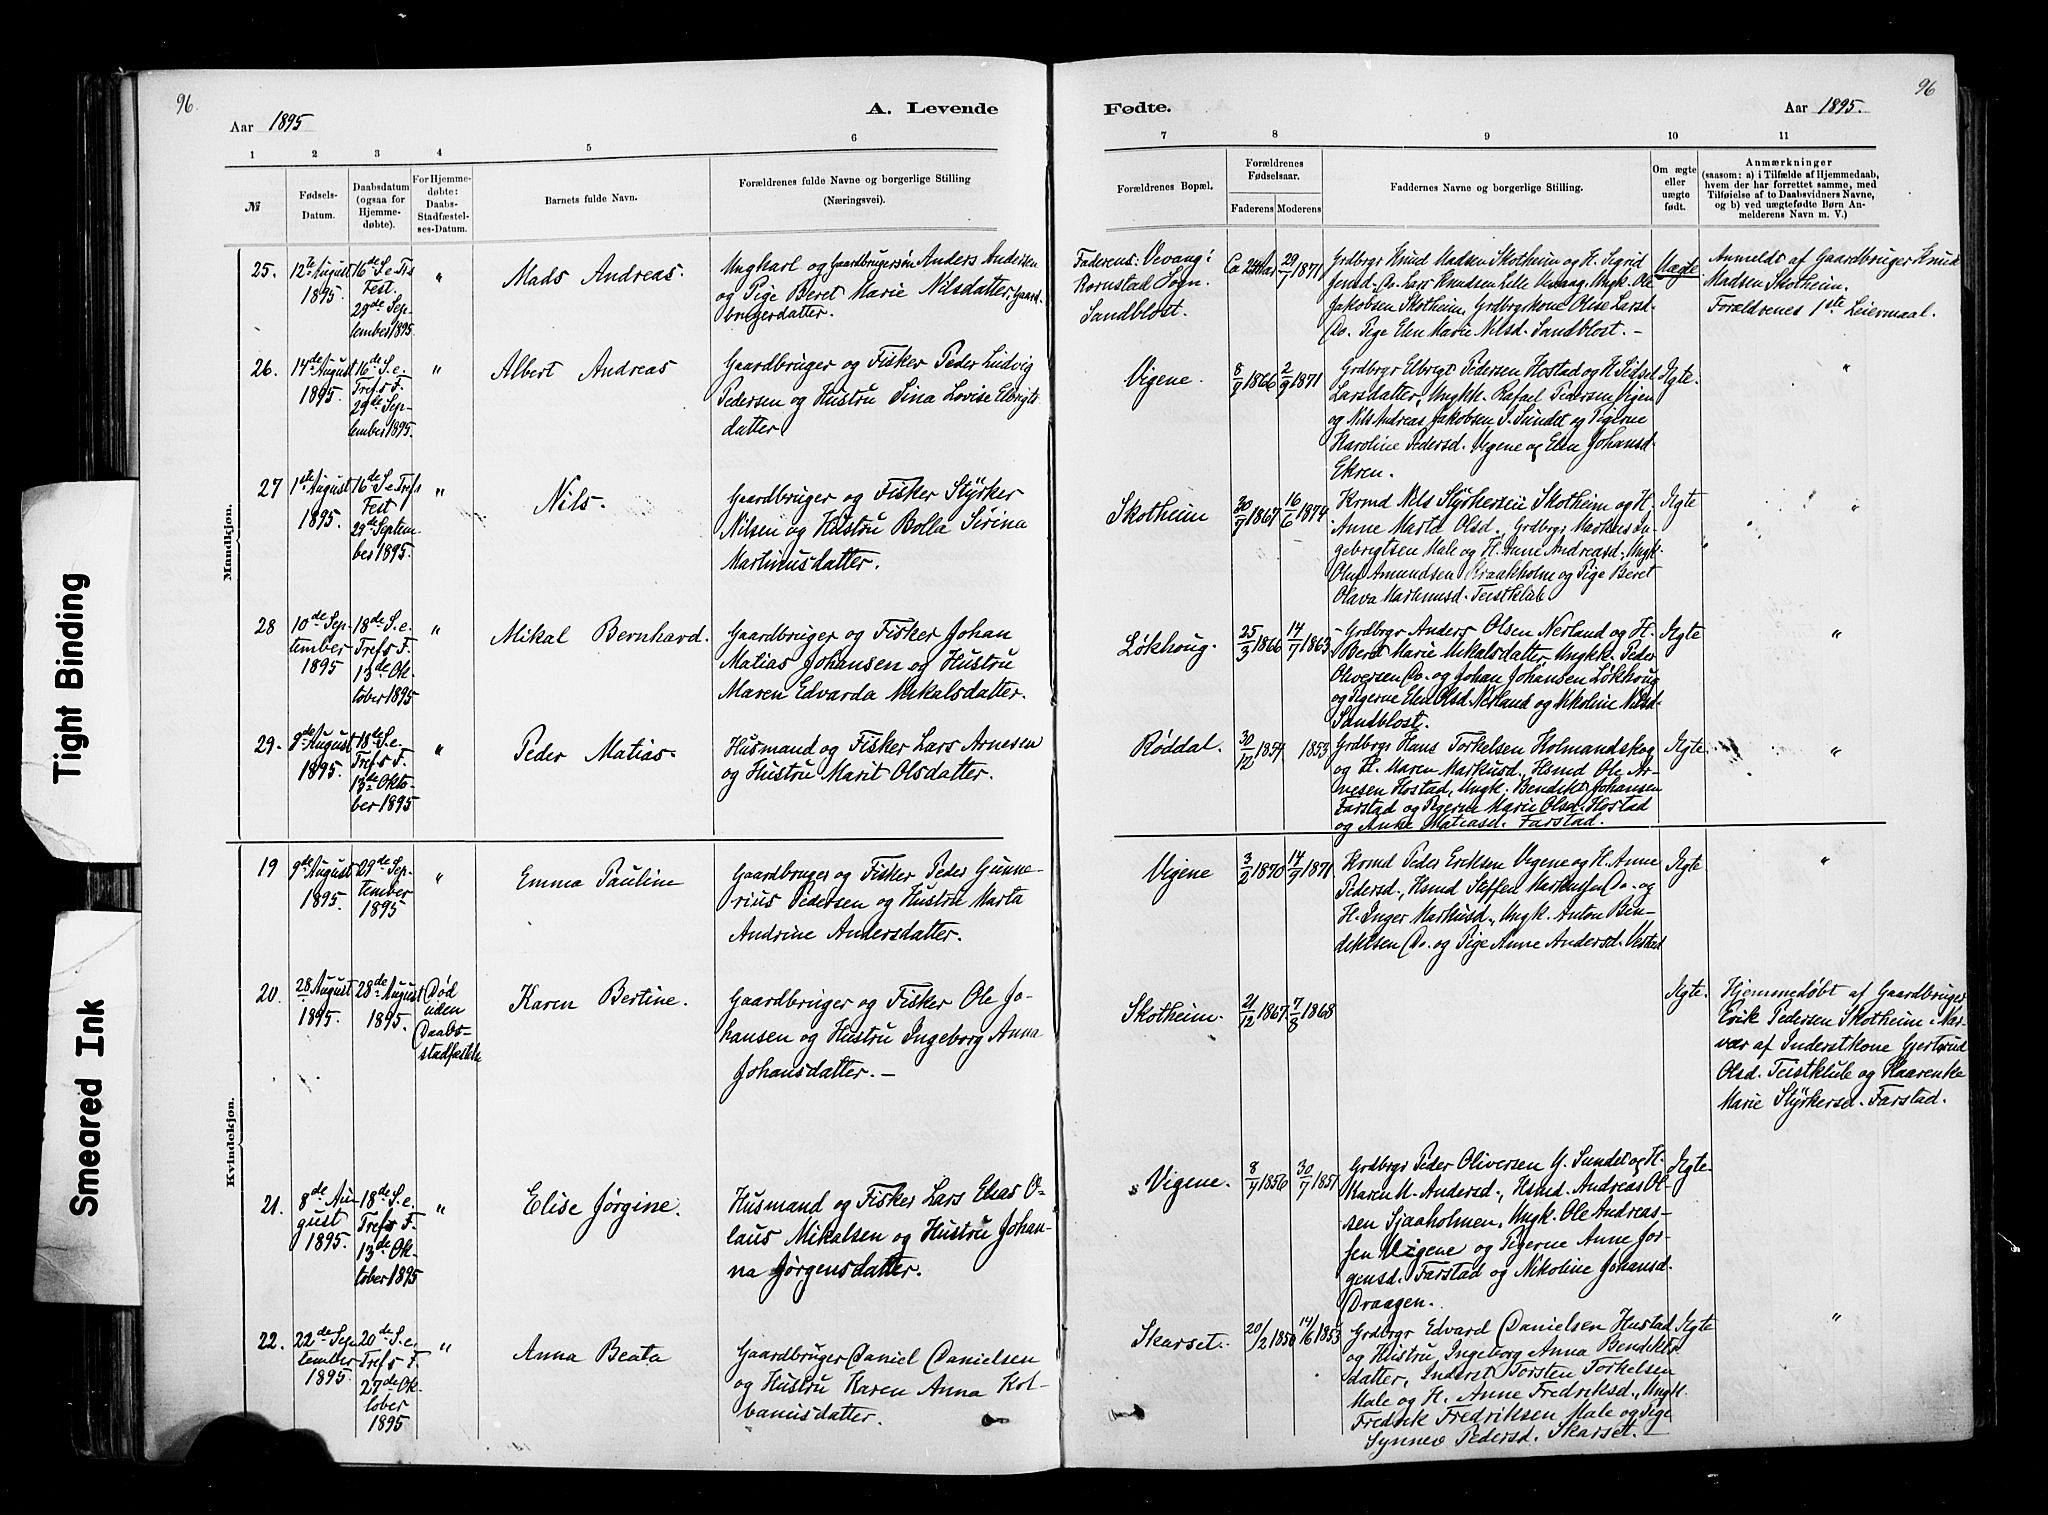 96.
A. Levende
Aar 1895
1 2 3 4 5 6
№
Fødsels-
Datum.
Daabsdatum
(ogsaa for
Hjemme-
døbte).
For Hjemme-
døbte:
Daabs-
Stadfæstel-
ses-Datum.
Barnets fulde Navn.
Forældrenes fulde Navne og borgerlige Stilling
(Næringsvei).
Mandkjøn.
25.
12te August
1895.
16de S. e. Trs
Fest.
29de Sep-
tember 1895.
"
Mads Andreas.
Ungkarl og Gaardbrugersøn Anders Andersen
og Pige Beret Marie Nilsdatter, Gaard-
brugerdatter.
26.
14de August
1895.
16de S. e.
Tref s F.
29de Sep-
tember 1895.
"
Albert Andreas
Gaardbruger og Fisker Peder Ludvig
Pedersen og Hustru Sina Lovise Elbrigts
datter
27
1ste August
1895.
16de S. e Tref s
Fest
29de Septem-
ber 1895.
"
Nils.
Gaardbruger og Fisker Styrker
Nilsen og Hustru Bolla Sirina
Martinusdatter.
28
10de Sep-
tember
1895
18de S. e.
Tref s F.
13de Ok-
tober 1895
"
Mikal Bernhard.
Gaardbruger og Fisker Johan
Matias Johansen og Hustru
Maren Edvarda Mikalsdatter.
29.
8de August
1895.
18de S. e.
Tref s F.
13de Okto-
ber 1895
"
Peder Matias.
Husmand og Fisker Lars Arnesen
og Hustru Marit Olsdatter.
Kvindekjøn.
19
9de August
1895.
29de Sep-
tember
1895
"
Emma Pauline
Gaardbruger og Fisker Peder Gunne-
rius Pedersen og Hustru Marta
Andrine Andersdatter.
20.
28 August
1895.
28de August
1895.
Død
uden
Daabs-
stadfæstelse
Karen Bertine.
Gaardbruger og Fisker Ole Jo-
hansen og Hustru Ingeborg Anna
Johansdatter. —
21.
8de Au-
gust
1895.
18de S. e.
Tref s F.
13de Ok-
tober 1895
"
Elise Jørgine.
Husmand og Fisker Lars Elias O-
laus Mikalsen og Hustru Johan-
na Jørgensdatter.
22.
22de Sep-
tember
1895.
20de S. e.
Tref s F.
27de Ok-
tober
1895
"
Anna Beata
Gaardbruger Daniel Danielsen
og Hustru Karen Anna Kol-
banusdatter.
96
Fødte.
Aar 1895.
7 8 9 10 11
Forældrenes Bopæl.
Forældrenes
Fødselsaar.
Faderens Moderens
Faddernes Navne og borgerlige Stilling.
Om ægte
eller
uægte
født.
Anmærkninger
(saasom: a) i Tilfælde af Hjemmedaab,
hvem der har forrettet samme, med
Tilføielse af to Daabsvidners Navne,
og b) ved uægtefødte Børn An-
melderens Navn m. V.)
Faderens: Vevang i
Kornstad Sogn.
Sandblost.
29/7 1871
Grdbrgr Knud Madsen Skotheim og H. Sigrid
Jensd. Do. Lars Knudsen Lille Vevang, Ungk. Ole
Jakobsen Skotheim, Grdbrgrkone Olise Larsd.
Do. Pige Elen Marie Nilsd. Sandblost. —
Uægte
Anmeldt af Gaardbruger Knud
Madsen Skotheim.
Forældrenes 1ste Leiermaal.
Vigene.
8/9 1866
2/9 1871
Grdbrgr Elbrigt Pedersen Hostad og H. Sidsel
Larsdatter, Ungkk. Rafael Pedersen Vigen
og Nils Andreas Jakobsen I. Sundet og Pigerne
Karoline Pedersd. Vigene og Elen Johansd.
Ekren.
Ægte.
"
Skotheim
30/7 1867
16/6 1874
Krmd Nils Styrkersen Skotheim og H.
Anne Marta Olsd., Grdbrgr Markus In-
gebrigtsen Male og H. Anne Andreasd., Ungk.
Oluf Amundsen Kraakholm og Pige Beret
Olava Martinusd. Teistklub
Ægte
"
Løkhoug.
25/3 1866
14/7 1863
Grdbrgr Anders Olsen Nerland og H.
Beret Marie Mikalsdatter, Ungkk. Peder
Oliversen Do. og Johan Johansen Løkhoug
og Pigerne Elen Olsd. Nerland og Nikoline Nilsd.
Sandblost.
Ægte
"
Røddal.
30/12 1854
1853
Grdbrgr Hans Torkelsen Holmandskog
og H. Maren Markusd., Hsmd Ole Ar-
nesen Hostad, Ungk. Bendikt Johansen
Farstad og Pigerne Marie Olsd. Hostad
og Anne Matiasd. Farstad.
Ægte
"
Vigene
3/2 1870
14/9 1871
Krmd Peder Eriksen Vigene og H. Anne
Pedersd., Hsmd Steffen Markussen Do. og
H. Inger Markusd., Ungk. Anton Ben-
diktsen Do. og Pige Anne Andersd. Vestad
Ægte
"
Skotheim.
21/12 1867.
7/8 1868
Ægte.
Hjemmedøbt af Gaardbruger
Erik Pedersen Skotheim i Nær-
vær af Inderstkone Gjertrud
Olsd. Teistklub og Haarenke
Marie Styrkersd. Farstad.
Vigene.
8/4 1856
30/7 1851
Grdbrgr Peder Oliversen Y. Sundet og H.
Karen M. Andersd., Hsmd. Andreas Ol-
sen Sjaaholmen, Ungk. Ole Andreas-
sen Vigene og Pigerne Anne Jør-
gensd. Farstad og Nikoline Johansd.
Draagen.
Ægte
Skarset.
20/2 1850
14/6 1853
Grdbrgr Edvard Danielsen Hustad
og Hustru Ingeborg Anna Bendikts-
datter, Inderst Torsten Torkelsen
Male og H. Anne Fredriksd., Ungk.
Fredrik Fredriksen Male og Pige
Synnev Pedersd. Skarset. —
Ægte
"
Tight Binding
Smeared Ink